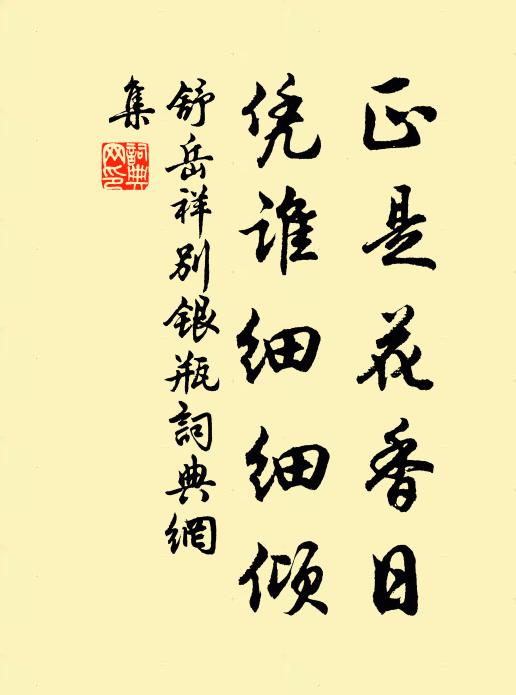 正是花香日
凭谁细细倾
舒岳祥别银瓶詞典網
集
詞典網印